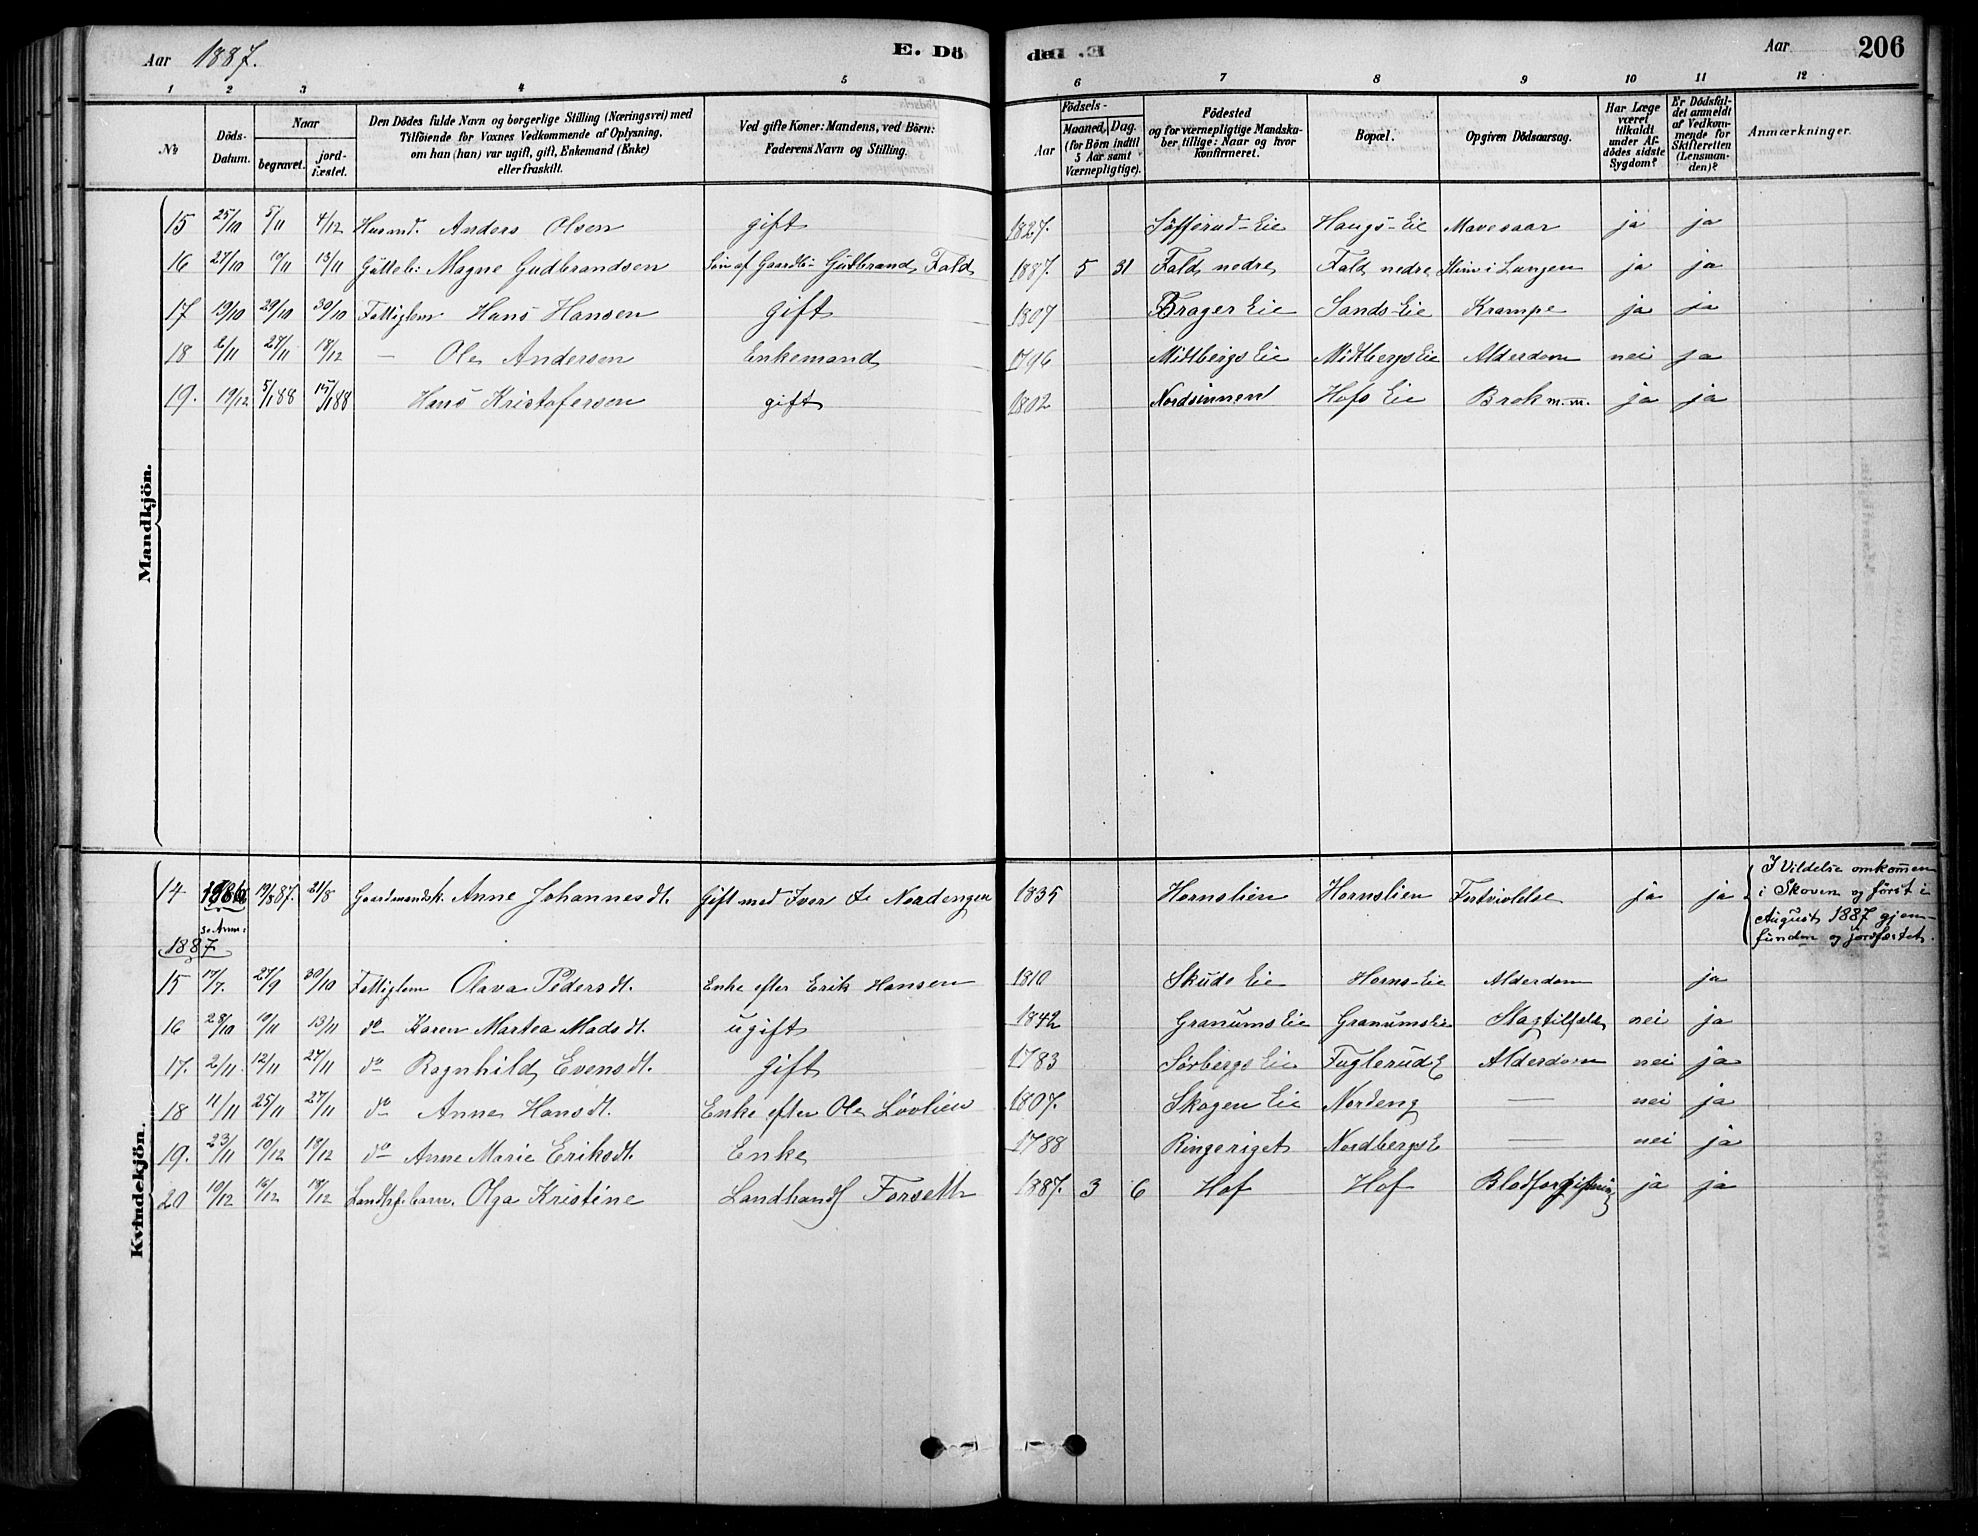 Aar 1887. E. Dö
de E. Aar 206
1 2 3 4 5 6 7 8 9 10 11 12
No Döds-Datum. Naar begravet. jord-fæstet. Den Dödes fulde Navn og borgerlige Stilling (Næringsvei) med Tilföiende for Voxnes Vedkommende af Oplysning, om han (hun) var ugift, gift, Enkemand (Enke) eller fraskilt. Ved gifte Koner: Mandens, ved Börn: Faderens Navn og Stilling. Födsels- Aar Maaned, Dag. (for Börn indtil 5 Aar samt Værnepligtige). Födested og for værnepligtige Mandskaber tillige: Naar og hvor konfirmeret. Bopæl. Opgiven Dödsaarsag. Har Læge været tilkaldt under Afdödes sidste Sygdom? Er Dödsfaldet anmeldt af Vedkommende for Skifteretten (Lensmanden)? Anmærkninger.
Mandkjön.
15 25/10 5/11 4/12 Husmd. Anders Olsen gift 1827. Söfferud-Eie Haugs-Eie Mavesaar ja ja
16 27/10 10/11 13/11 Gütteb: Magne Gudbrandsen Sön af Gaardb: Gudbrand Fald 1887. 5 31 Fald nedre Fald nedre Slim i Lungen ja ja
17 19/10 29/10 30/10 Fattiglem Hans Hansen gift 1807 Brager Eie Sands-Eie Krampe ja ja
18 2/11 27/11 18/12 — Ole Andersen Enkemand 1796 Midtbergs Eie Midtbergs Eie Alderdom nei ja
19. 19/12 5/1 88 15/1 88 Hans Kristofersen gift 1802 Nordsinnen Hofs Eie Brok m.m. ja ja
Kvindekjön.
14 1886 19/8 87. 21/8 Gaardmandsk. Anne Johannesdt. Gift med Iver Nordengen 1835 Hornslien Hornslien Fortvivlelse ja ja I Vildelse omkommen
i Skoven og först i
August 1887 gjen-
funden og jordfæstet.
se Anm:
1887
15 17/7. 27/9 30/10 Fattiglem Olava Pedersdt. Enke efter Erik Hansen 1810 Skude Eie Horns-Eie Alderdom ja
16 28/10 10/11 13/11 do Karen Martea Madsdt. ugift 1842 Granums Eie Granums Eie Slagtilfælde nei ja
17. 2/11. 12/11 27/11 do Ragnhild Evensdt. Gift 1783 Sörbergs Eie Fuglerud E Alderdom nei ja
18 11/11 25/11 27/11 do Anne Hansdt. Enke efter Ole Lövlien 1807. Skogen Eie Nordeng — nei ja
19. 23/11 10/12 18/12 do Anne Marie Eriksdt. Enke 1788 Ringeriget Nordbergs E — nei ja
20 10/12 16/12 18/12 Landhs.barn. Olga Kristine Landhandl Forseth 1887. 3 6 Hof Hof Blodforgiftning ja ja